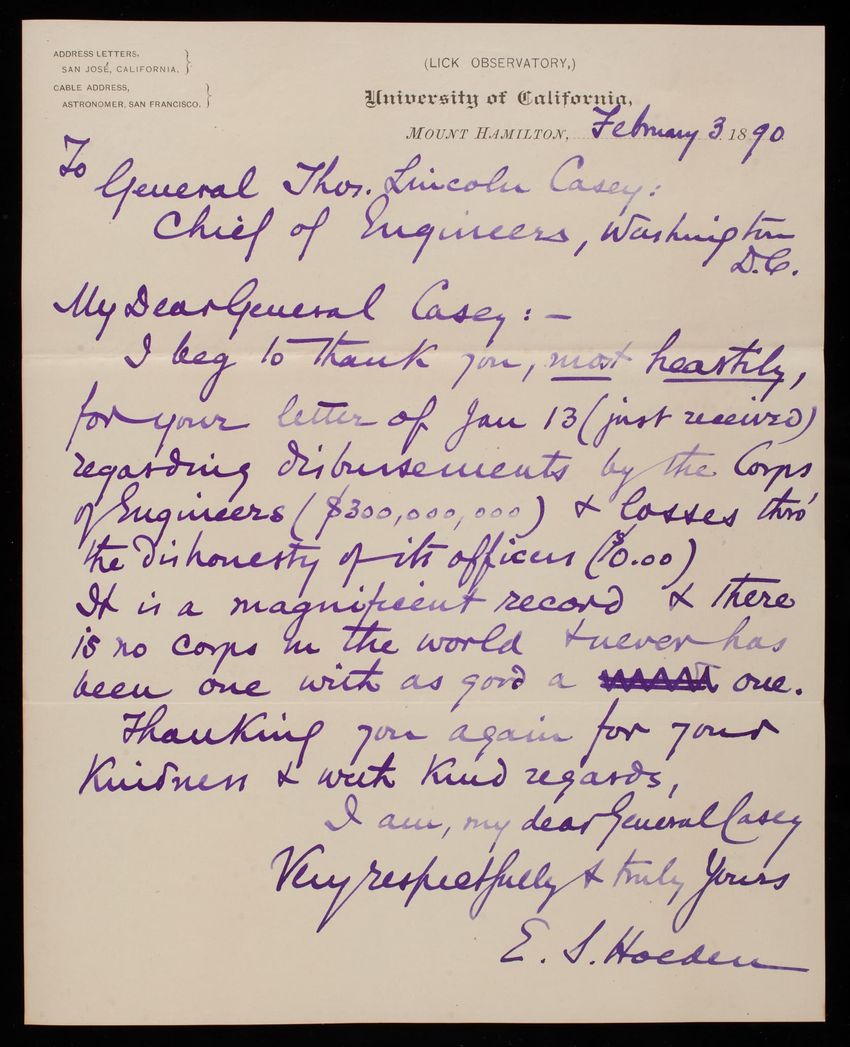 ADDRESS LETTERS,
SAN JOSÉ, CALIFORNIA.
CABLE ADDRESS,
ASTRONOMER, SAN FRANCISCO.
(LICK OBSERVATORY,)
University of California,
MOUNT HAMILTON, February 3 1890
To
General Thos. Lincoln Casey:
Chief of Engineers, Washington
D.C.
My Dear General Casey: —
I beg to thank you, most heartily,
for your letter of Jan 13 (just received)
regarding disbursements by the Corps
of Engineers ($300,000,000) & losses thro'
the dishonesty of its officers ($0.00)
It is a magnificent record & there
is no corps in the world & never has
been one with as good a one.
Thanking you again for your
kindness & with kind regards,
I am, my dear General Casey
Very respectfully & truly Yours
E. S. Holden